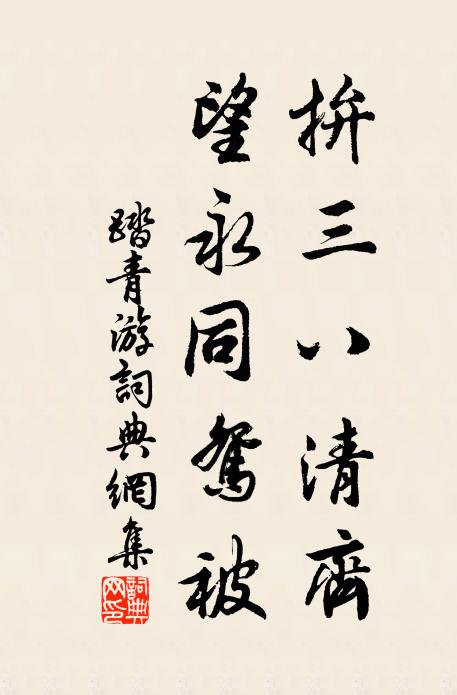 拚三八清齊
望永同鴛被
踏青游詞典網集
詞典網印